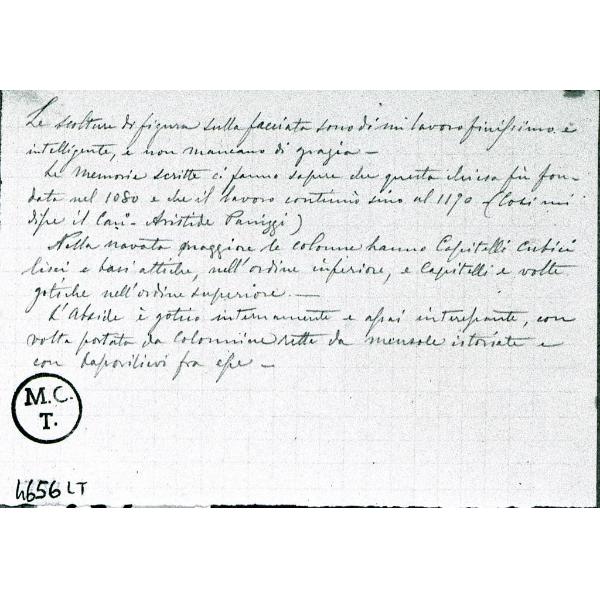 Le scolture di figura sulla facciata sono di un lavoro finissimo e
intelligente, e non mancano di grazia —
Le Memorie scritte ci fanno sapere che questa chiesa fu fon-
data nel 1080 e che il lavoro continuò sino al 1170 — (Così mi
disse il Can.° Aristide)
Nella navata maggiore le colonne hanno Capitelli cubici
lisci e basi attiche, nell'ordine inferiore, e Capitelli e volte
gotiche nell'ordine superiore. —
L'Abside è gotico internamente e assai interessante, con
volta portata da Colonnine rette da mensole istoriate e
con bassorilievi fra esse —
M.C.
T.
4656 LT